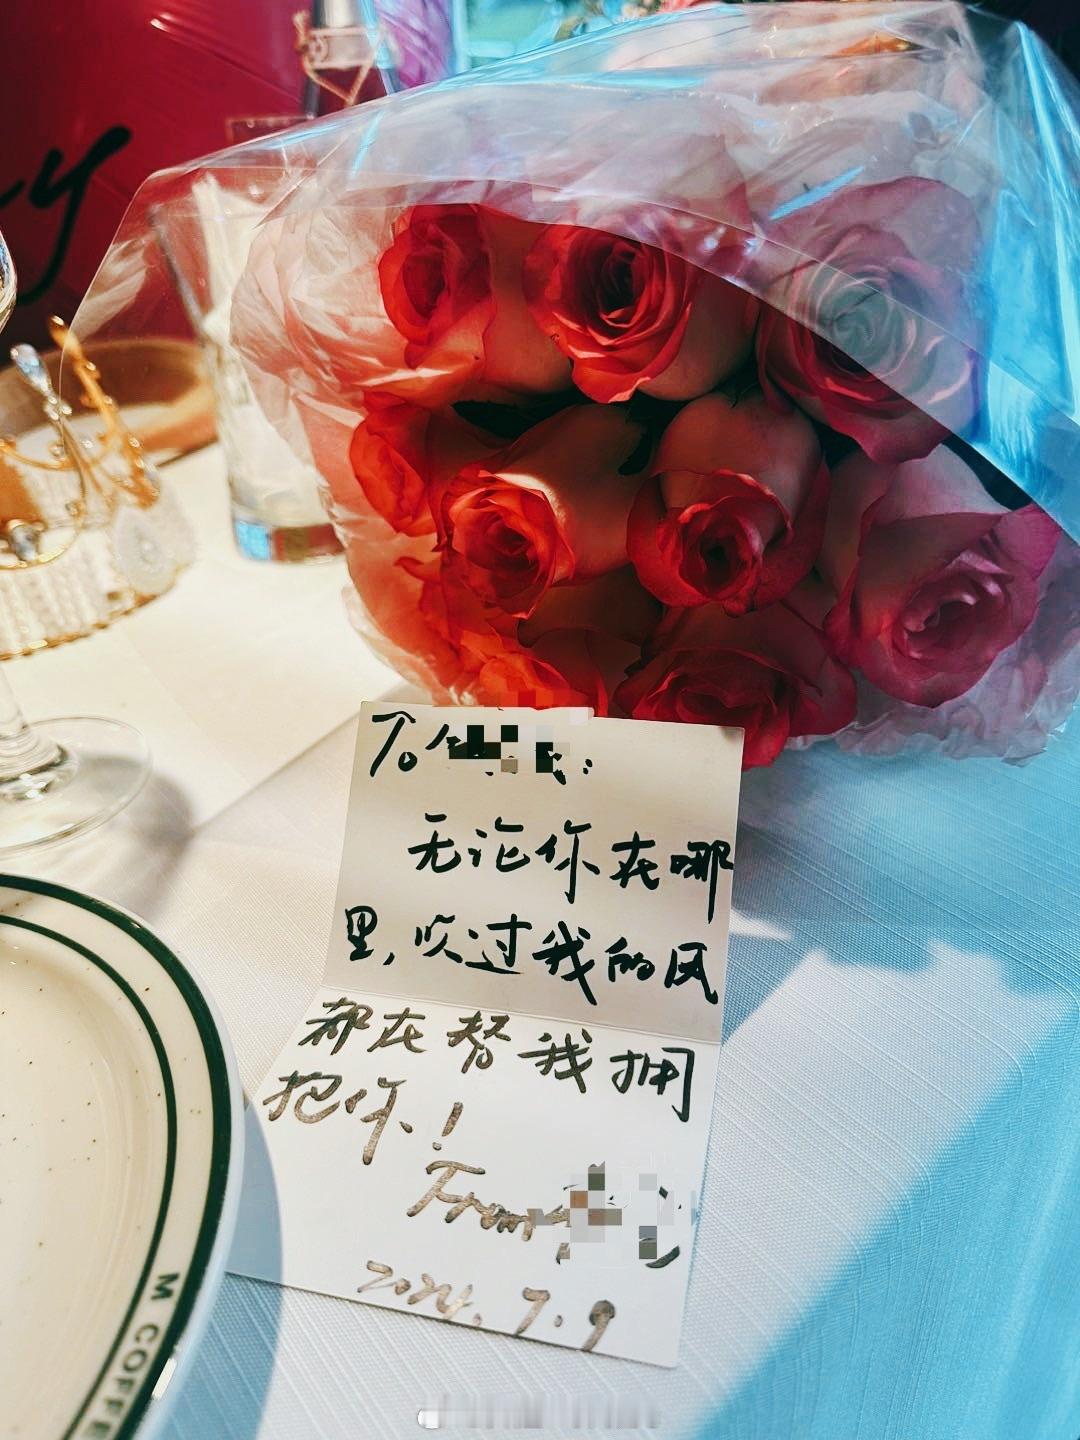 To
无论你在哪
里,吹过我的风
都在替我拥
抱你!
From
2024.7.9
M COFFEE